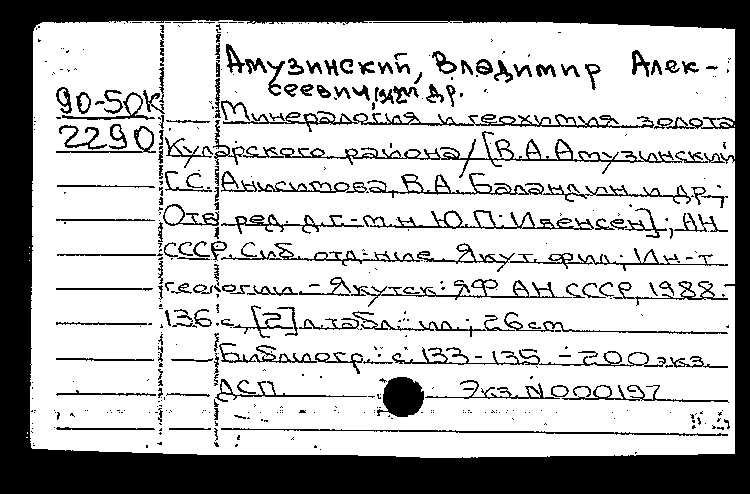 Амузинский, Владимир Алек-
сеевич и др.
90-50К
2290
Минералогия и геохимия золота
Куларского района / [В.А. Амузинский
Г.С. Анисимова, В.А. Баландин и др.;
Отв. ред. д.г.-м.н. Ю.П. Ивенсен]; АН
СССР. Сиб. отд-ние. Якут. фил.; Ин-т
геологии. - Якутск: ЯФ АН СССР, 1988. -
136 с., [2] л. табл.: ил.; 26 cm
Библиогр.: с. 133-135. - 200 экз.
ДСП. Экз. N 000197